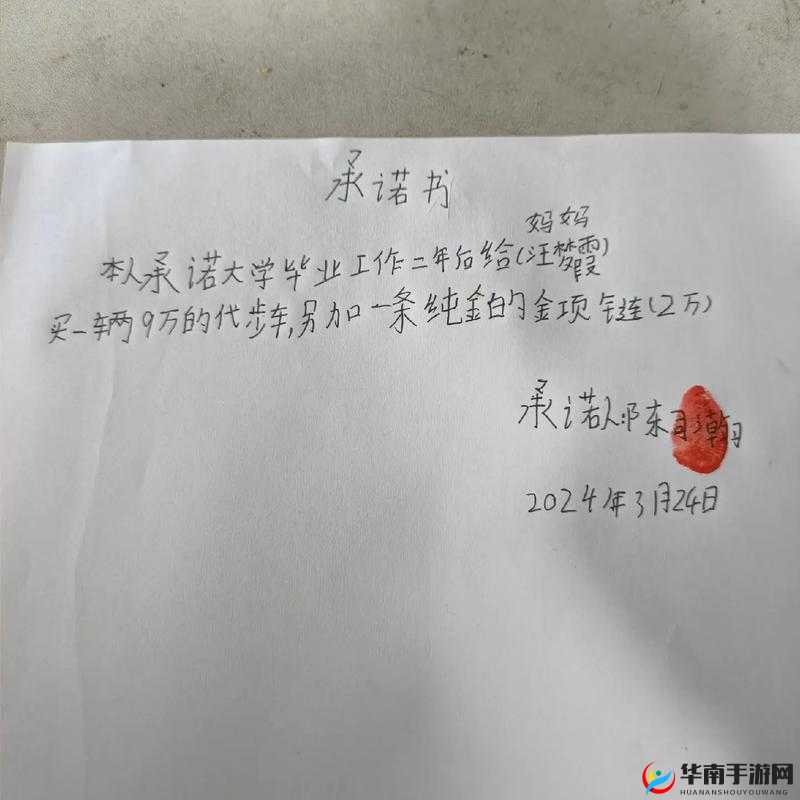 承诺书
妈妈
本人承诺大学毕业工作二年后给(汪梦霞)
买一辆9万的代步车,另加一条纯金的金项链(2万)
承诺人:陈子瀚
2024年3月24日
华南手游网
HUANANSHOUYOUWANG